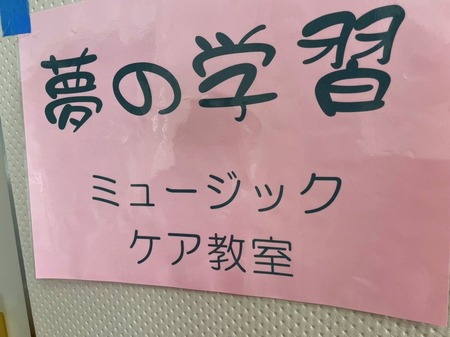 夢の学習
ミュージック
ケア教室